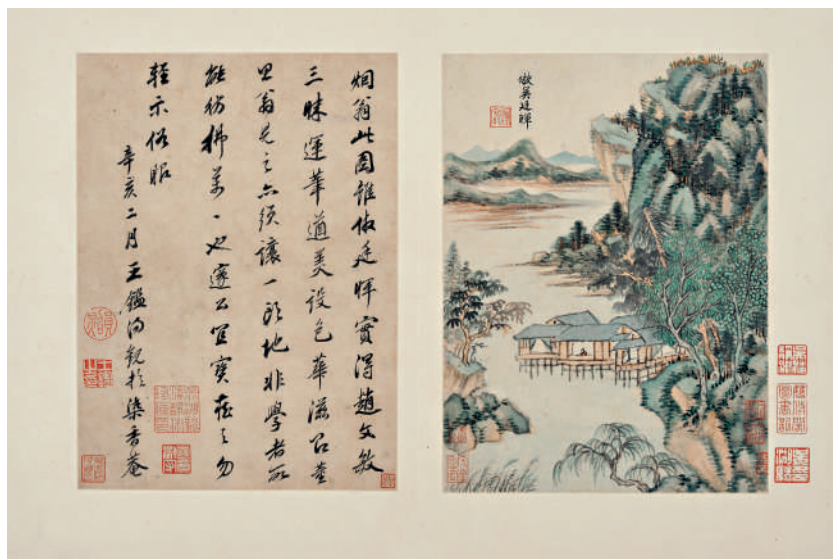 倣吳廷暉
烟翁此圖雖倣廷暉實得趙文敏
三昧運筆遒美設色華滋即董
思翁見之亦須讓一頭地非學者所
能彷彿萬一也遂公宜寶藏之勿
輕示俗眼
辛亥二月王鑑得觀於染香菴